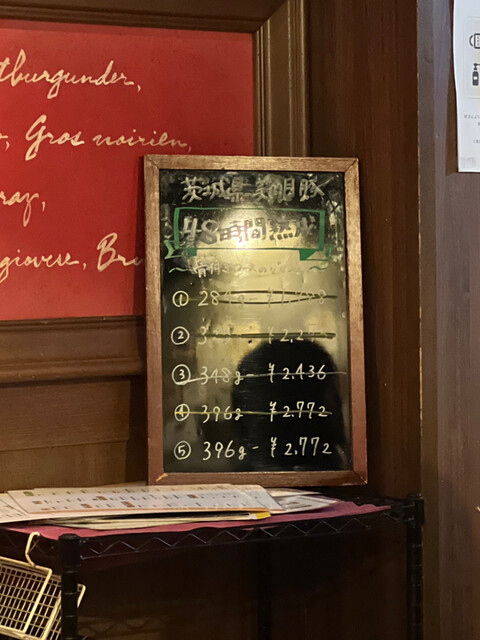 tburgunder,
Gros noirien,
ray,
giovese, Bru
茨城県 美明豚
48時間熟成
① 284g-
② ¥2,2
③ 348g-¥2.436
④ 396g-¥2.772
⑤ 396g-¥2.772